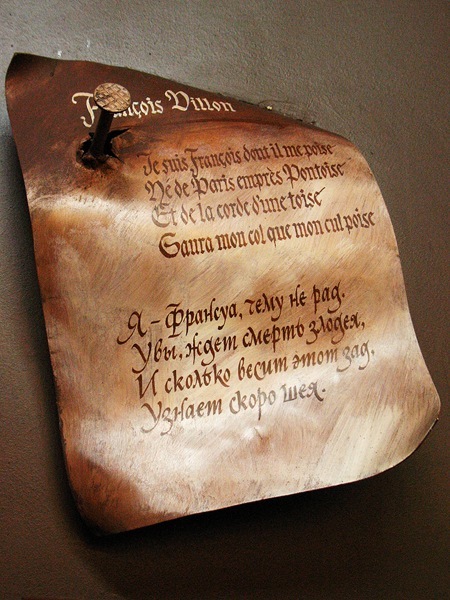 François Villon
Je suis François dont il me poise
Né de Paris emprès Pontoise
Et de la corde d'une toise
Saura mon col que mon cul poise
Я - Франсуа, чему не рад.
Увы, ждет смерть злодея,
И сколько весит этот зад,
Узнает скоро шея.